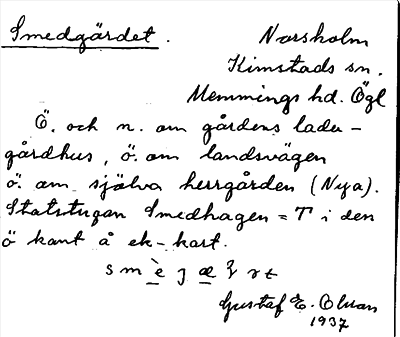 Smedgärdet.
Norsholm
Kimstads sn.
Memmings hd. Ögl
Ö. och n. om gårdens ladu-
gårdhus, ö. om landsvägen
ö. om själva herrgården (Nya).
Statstugan Smedhagen = T i den
ö kant å ek-kart.
Gustaf E. Olson
1937